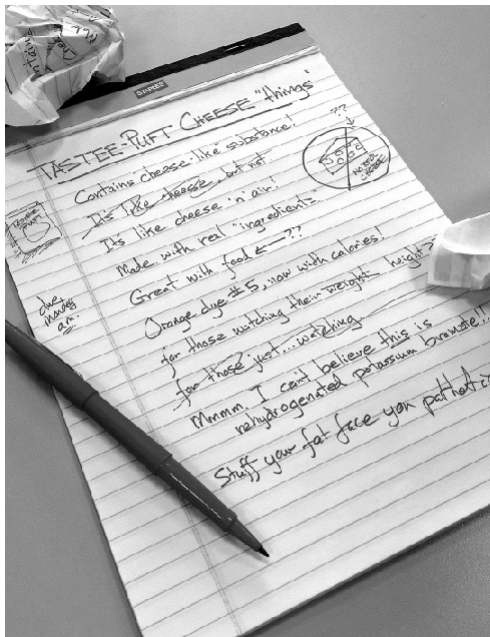 TASTEE-PUFT CHEESE "things"
Contains "cheese-like" substance!
It's like cheese, but not.
Its like cheese 'n' air!
Made with real "ingredients"
Great with food ← ??
Orange dye #5, now with calories!
for those watching their weight height?
for those just... watching.
Mmmm, I can't believe this is
rehydrogenated potassium bromate!!
Stuff your fat face you pathetic
??
NO REAL CHEESE
Puft
due
monday
am.